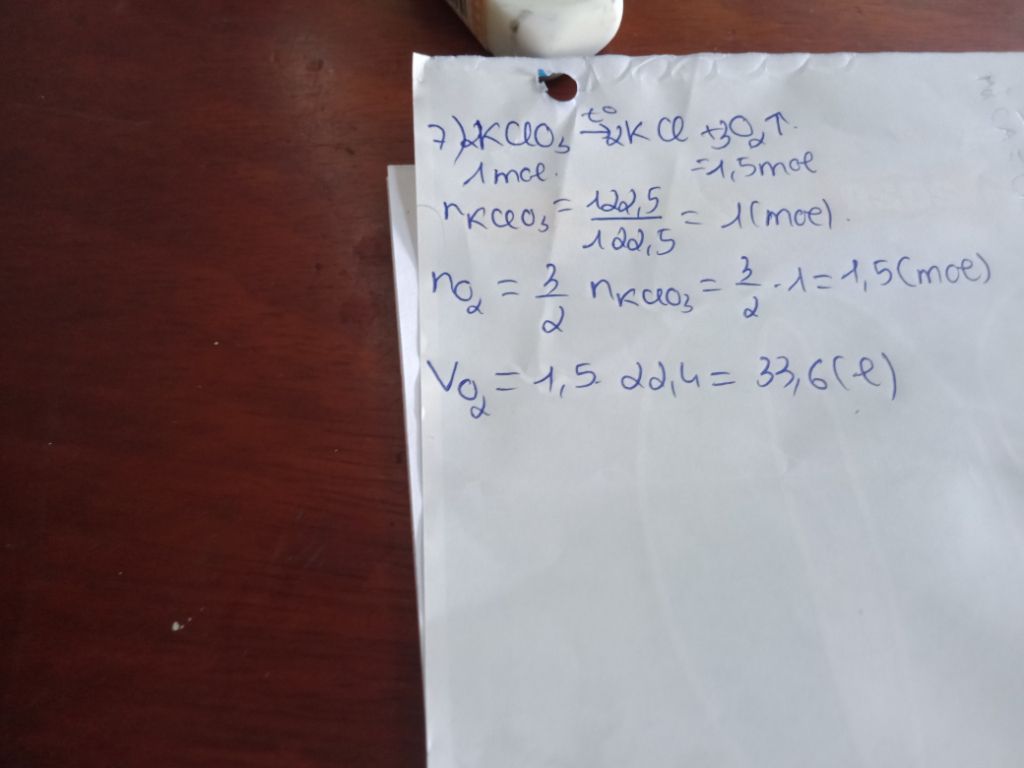 7) 2KClO₃ →t° 2KCl + 3O₂↑.
1mol. =1,5mol
nKClO₃ = 122,5/122,5 = 1(mol).
nO₂ = 3/2 nKClO₃ = 3/2 . 1 = 1,5(mol)
VO₂ = 1,5. 22,4 = 33,6(l)